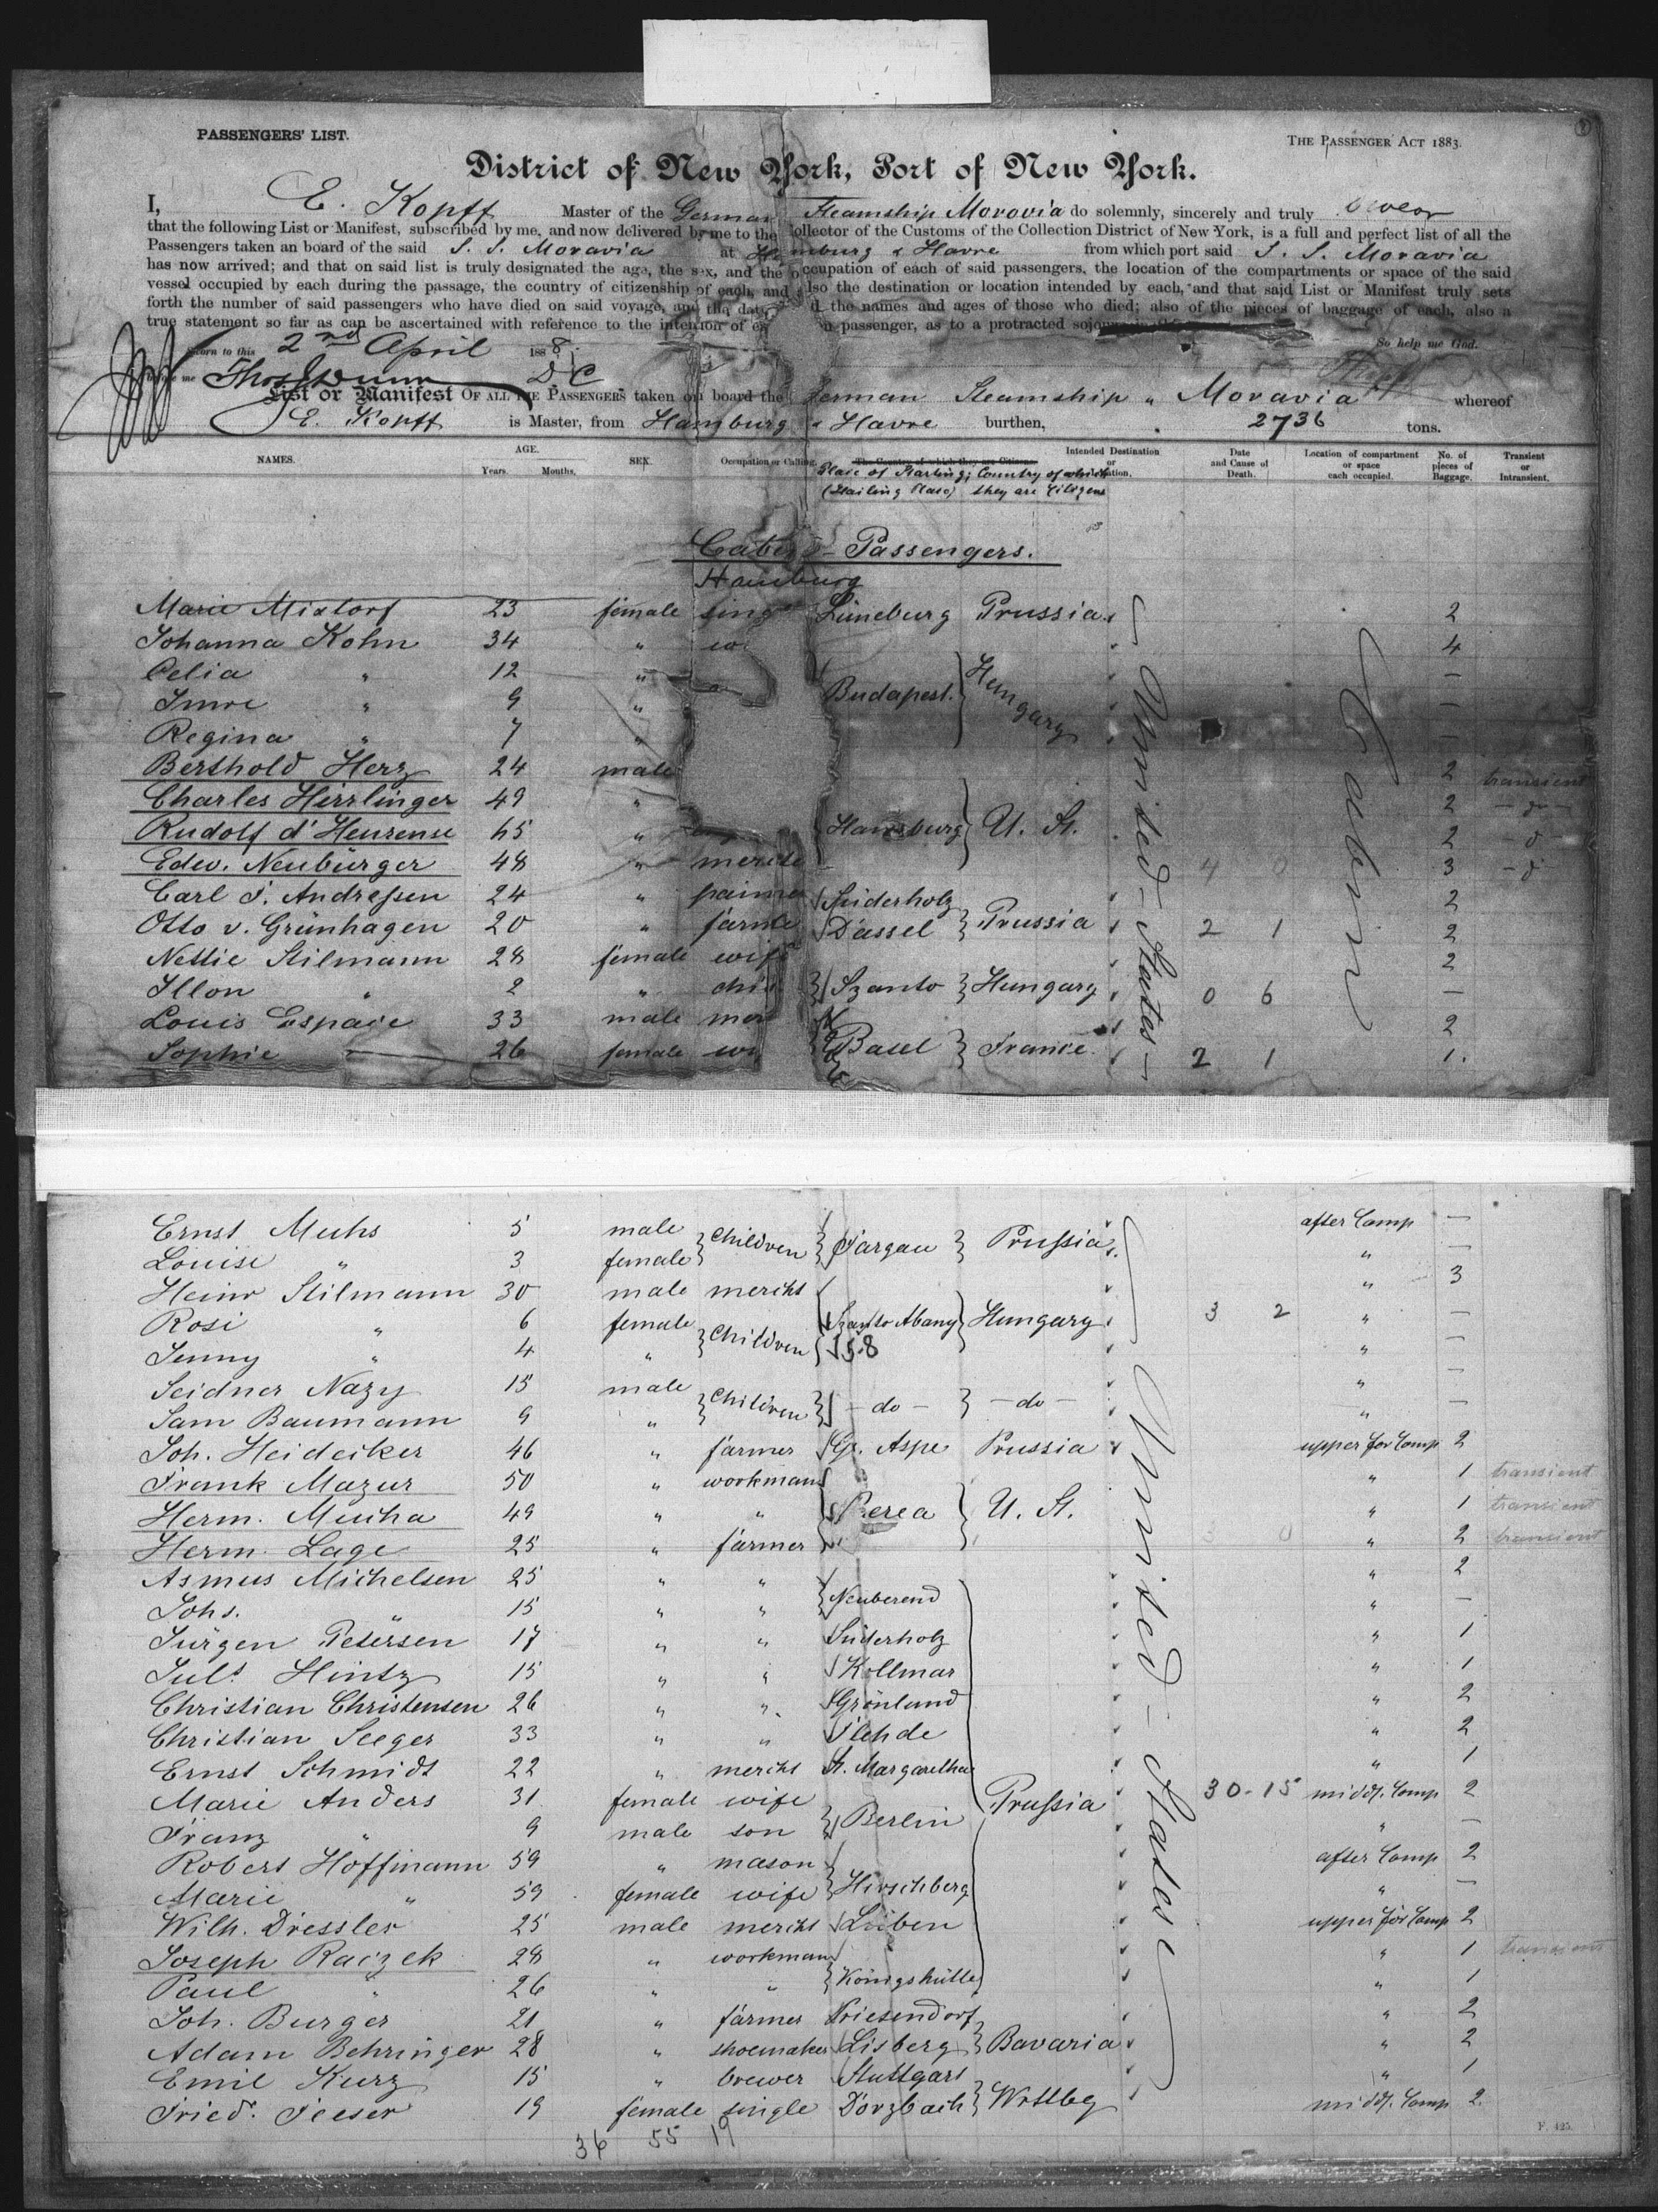 PASSENGERS' LIST.
THE PASSENGER ACT 1883.
District of New York, Port of New York.
I, E. Kopff Master of the German Steamship Moravia do solemnly, sincerely and truly swear
that the following List or Manifest, subscribed by me, and now delivered by me to the Collector of the Customs of the Collection District of New York, is a full and perfect list of all the
Passengers taken an board of the said S. S. Moravia at Hamburg & Havre from which port said S. S. Moravia
has now arrived; and that on said list is truly designated the age, the sex, and the occupation of each of said passengers, the location of the compartments or space of the said
vessel occupied by each during the passage, the country of citizenship of each, and also the destination or location intended by each, and that said List or Manifest truly sets
forth the number of said passengers who have died on said voyage, and the date and the names and ages of those who died; also of the pieces of baggage of each, also a
true statement so far as can be ascertained with reference to the intention of each passenger, as to a protracted
So help me God.
Sworn to this 2nd April 1888
before me Thos Dunn D. C.
List or Manifest OF ALL THE PASSENGERS taken on board the German Steamship " Moravia whereof
E. Kopff is Master, from Hamburg & Havre burthen, 2736 tons.
NAMES. AGE. Years. Months. SEX. Occupation or Calling. The Country of which they are Citizens. Intended Destination or Location. Date and Cause of Death. Location of compartment or space each occupied. No. of pieces of Baggage. Transient or Intransient.
Place of Starting; Country of which
(Hailing Place) they are Citizens
Cabin - Passengers.
Hamburg
Marie Mixtorf 23 female sing Lüneburg Prussia 2
Johanna Kohn 34 " 4
Celia " 12 " —
Imre " 9 " Budapest. Hungary —
Regina " 7 " —
Berthold Herz 24 male 2 transient
Charles Hirrlinger 49 " 2 - do -
Rudolf d'Heureuse 65 " Hamburg U. St. 2 - d
Edw. Neubürger 48 " 4 0 3 - d
Carl J. Andreſsen 24 " Süderholz 2
Otto v. Grünhagen 20 " farme Dassel Prussia 2 1 2
Nettie Stilmann 28 female wife 2
Illon " 2 " chi Szanto Hungary 0 6 —
Louis Espaie 33 male mer 2
Sophie — 26 female wi Basel France 2 1 1.
United - States -
Cabin
Ernst Muhs 5 male Children Targau Pruſsia after Comp —
Louise " 3 female " —
Heinr Stilmann 30 male mercht " 3
Rosi " 6 female Children Szanto Abany Hungary 3 2 " —
Jenny " 4 " 58 " —
Seidner Nazy 15 male Children - do - - do - " —
Sam Baumann 9 " " —
Joh. Heideiker 46 " farmer Gr. Aspe Prussia upper for Comp 2
Frank Mazur 50 " workman " 1 transient
Herm. Mucha 49 " " Berea U. St. " 1 transient
Herm. Lage 25 " farmer 0 " 2 transient
Asmus Michelsen 25 " " Neuberend " 2
Johs. " 15 " " " —
Jürgen Petersen 17 " " Süderholz " 1
Juls Hintz 15 " " Kollmar " 1
Christian Christensen 26 " " Grönland " 2
Christian Seeger 33 " " Flehde " 2
Ernst Schmidt 22 " mercht St. Margarethen " 1
Marie Anders 31 female wife Berlin Pruſsia 30-15 middl. Comp 2
Franz " 9 male son " —
Robert Hoffmann 59 " mason Hirschberg after Comp 2
Marie " 59 female wife " —
Wilh. Dressler 25 male mercht Lüben upper for Comp 2
Joseph Raczek 28 " workman " 1 transient
Paul " 26 " " Königshütte " 1
Joh. Burger 21 " farmer Wiesendorf " 2
Adam Behringer 28 " shoemaker Lisberg Bavaria " 2
Emil Kurz 15 " brewer Stuttgart " 1
Fried. Feeser 19 female single Dörzbach Wrttbg middl. Comp 2.
United - States
36 55 19
F. 425.